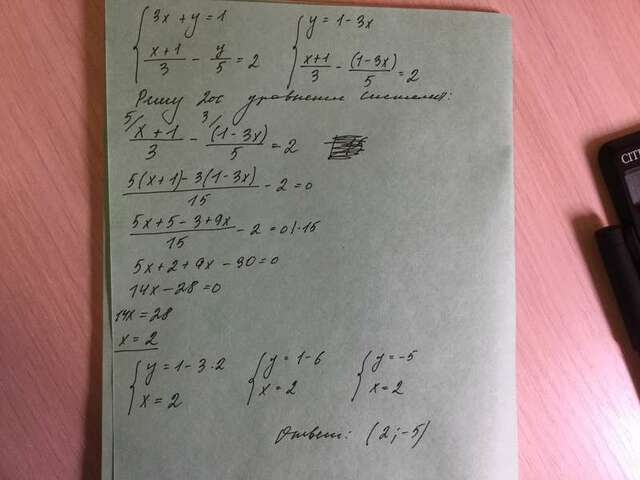 {3x + y = 1 {y = 1 - 3x
(x+1)/3 - y/5 = 2 (x+1)/3 - (1-3x)/5 = 2
Решу 2ое уравнение системы:
5/ (x+1)/3 - 3/ (1-3x)/5 = 2
(5(x+1)-3(1-3x))/15 - 2 = 0
(5x+5-3+9x)/15 - 2 = 0 |·15
5x+2+9x-30=0
14x-28=0
14x=28
x=2
{y=1-3·2 {y=1-6 {y=-5
x=2 x=2 x=2
Ответ: (2;-5)
CIT